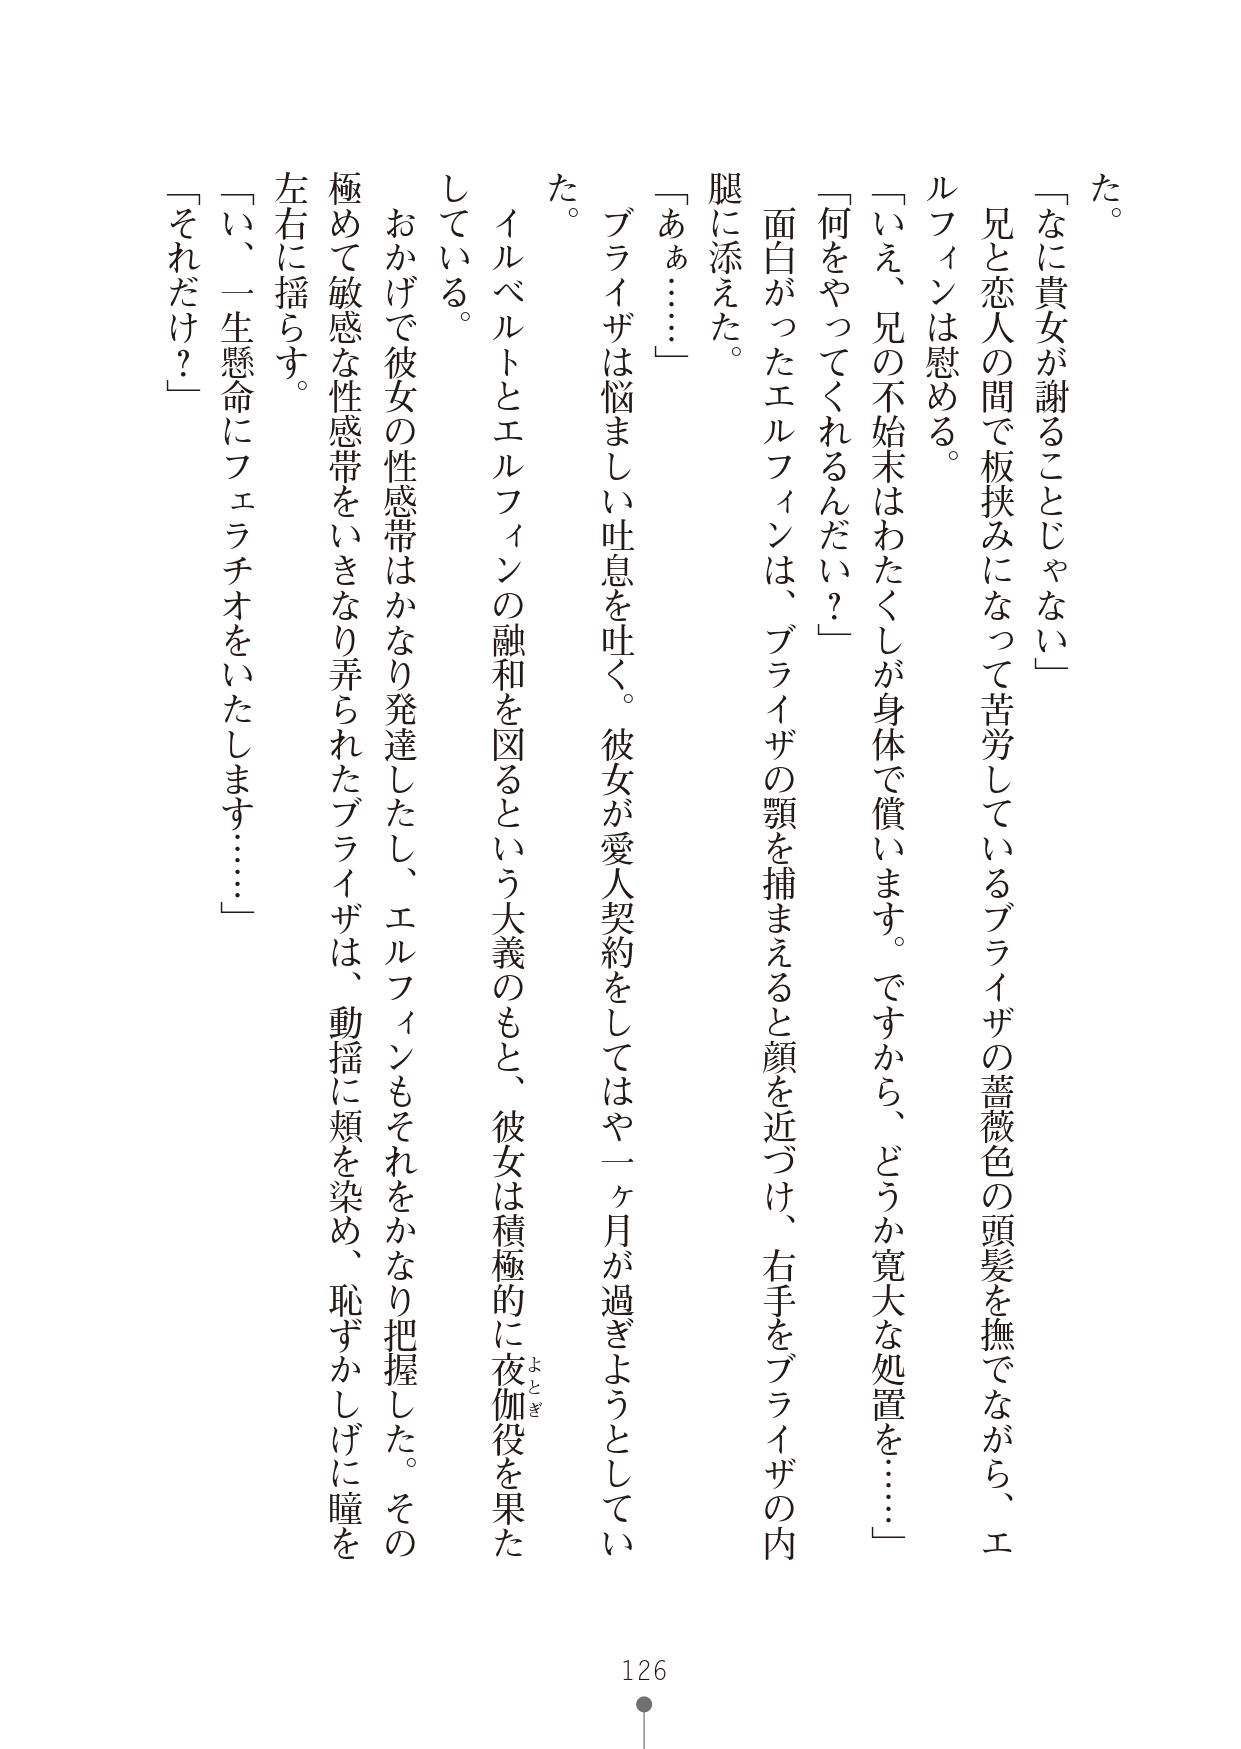 た。
「なに貴女が謝ることじゃない」
　兄と恋人の間で板挟みになって苦労しているブライザの薔薇色の頭髪を撫でながら、エ
ルフィンは慰める。
「いえ、兄の不始末はわたくしが身体で償います。ですから、どうか寛大な処置を……」
「何をやってくれるんだい？」
　面白がったエルフィンは、ブライザの顎を捕まえると顔を近づけ、右手をブライザの内
腿に添えた。
「あぁ……」
　ブライザは悩ましい吐息を吐く。彼女が愛人契約をしてはや一ヶ月が過ぎようとしてい
た。
　イルベルトとエルフィンの融和を図るという大義のもと、彼女は積極的に夜伽役を果た
よとぎ
している。
　おかげで彼女の性感帯はかなり発達したし、エルフィンもそれをかなり把握した。その
極めて敏感な性感帯をいきなり弄られたブライザは、動揺に頬を染め、恥ずかしげに瞳を
左右に揺らす。
「い、一生懸命にフェラチオをいたします……」
「それだけ？」
126